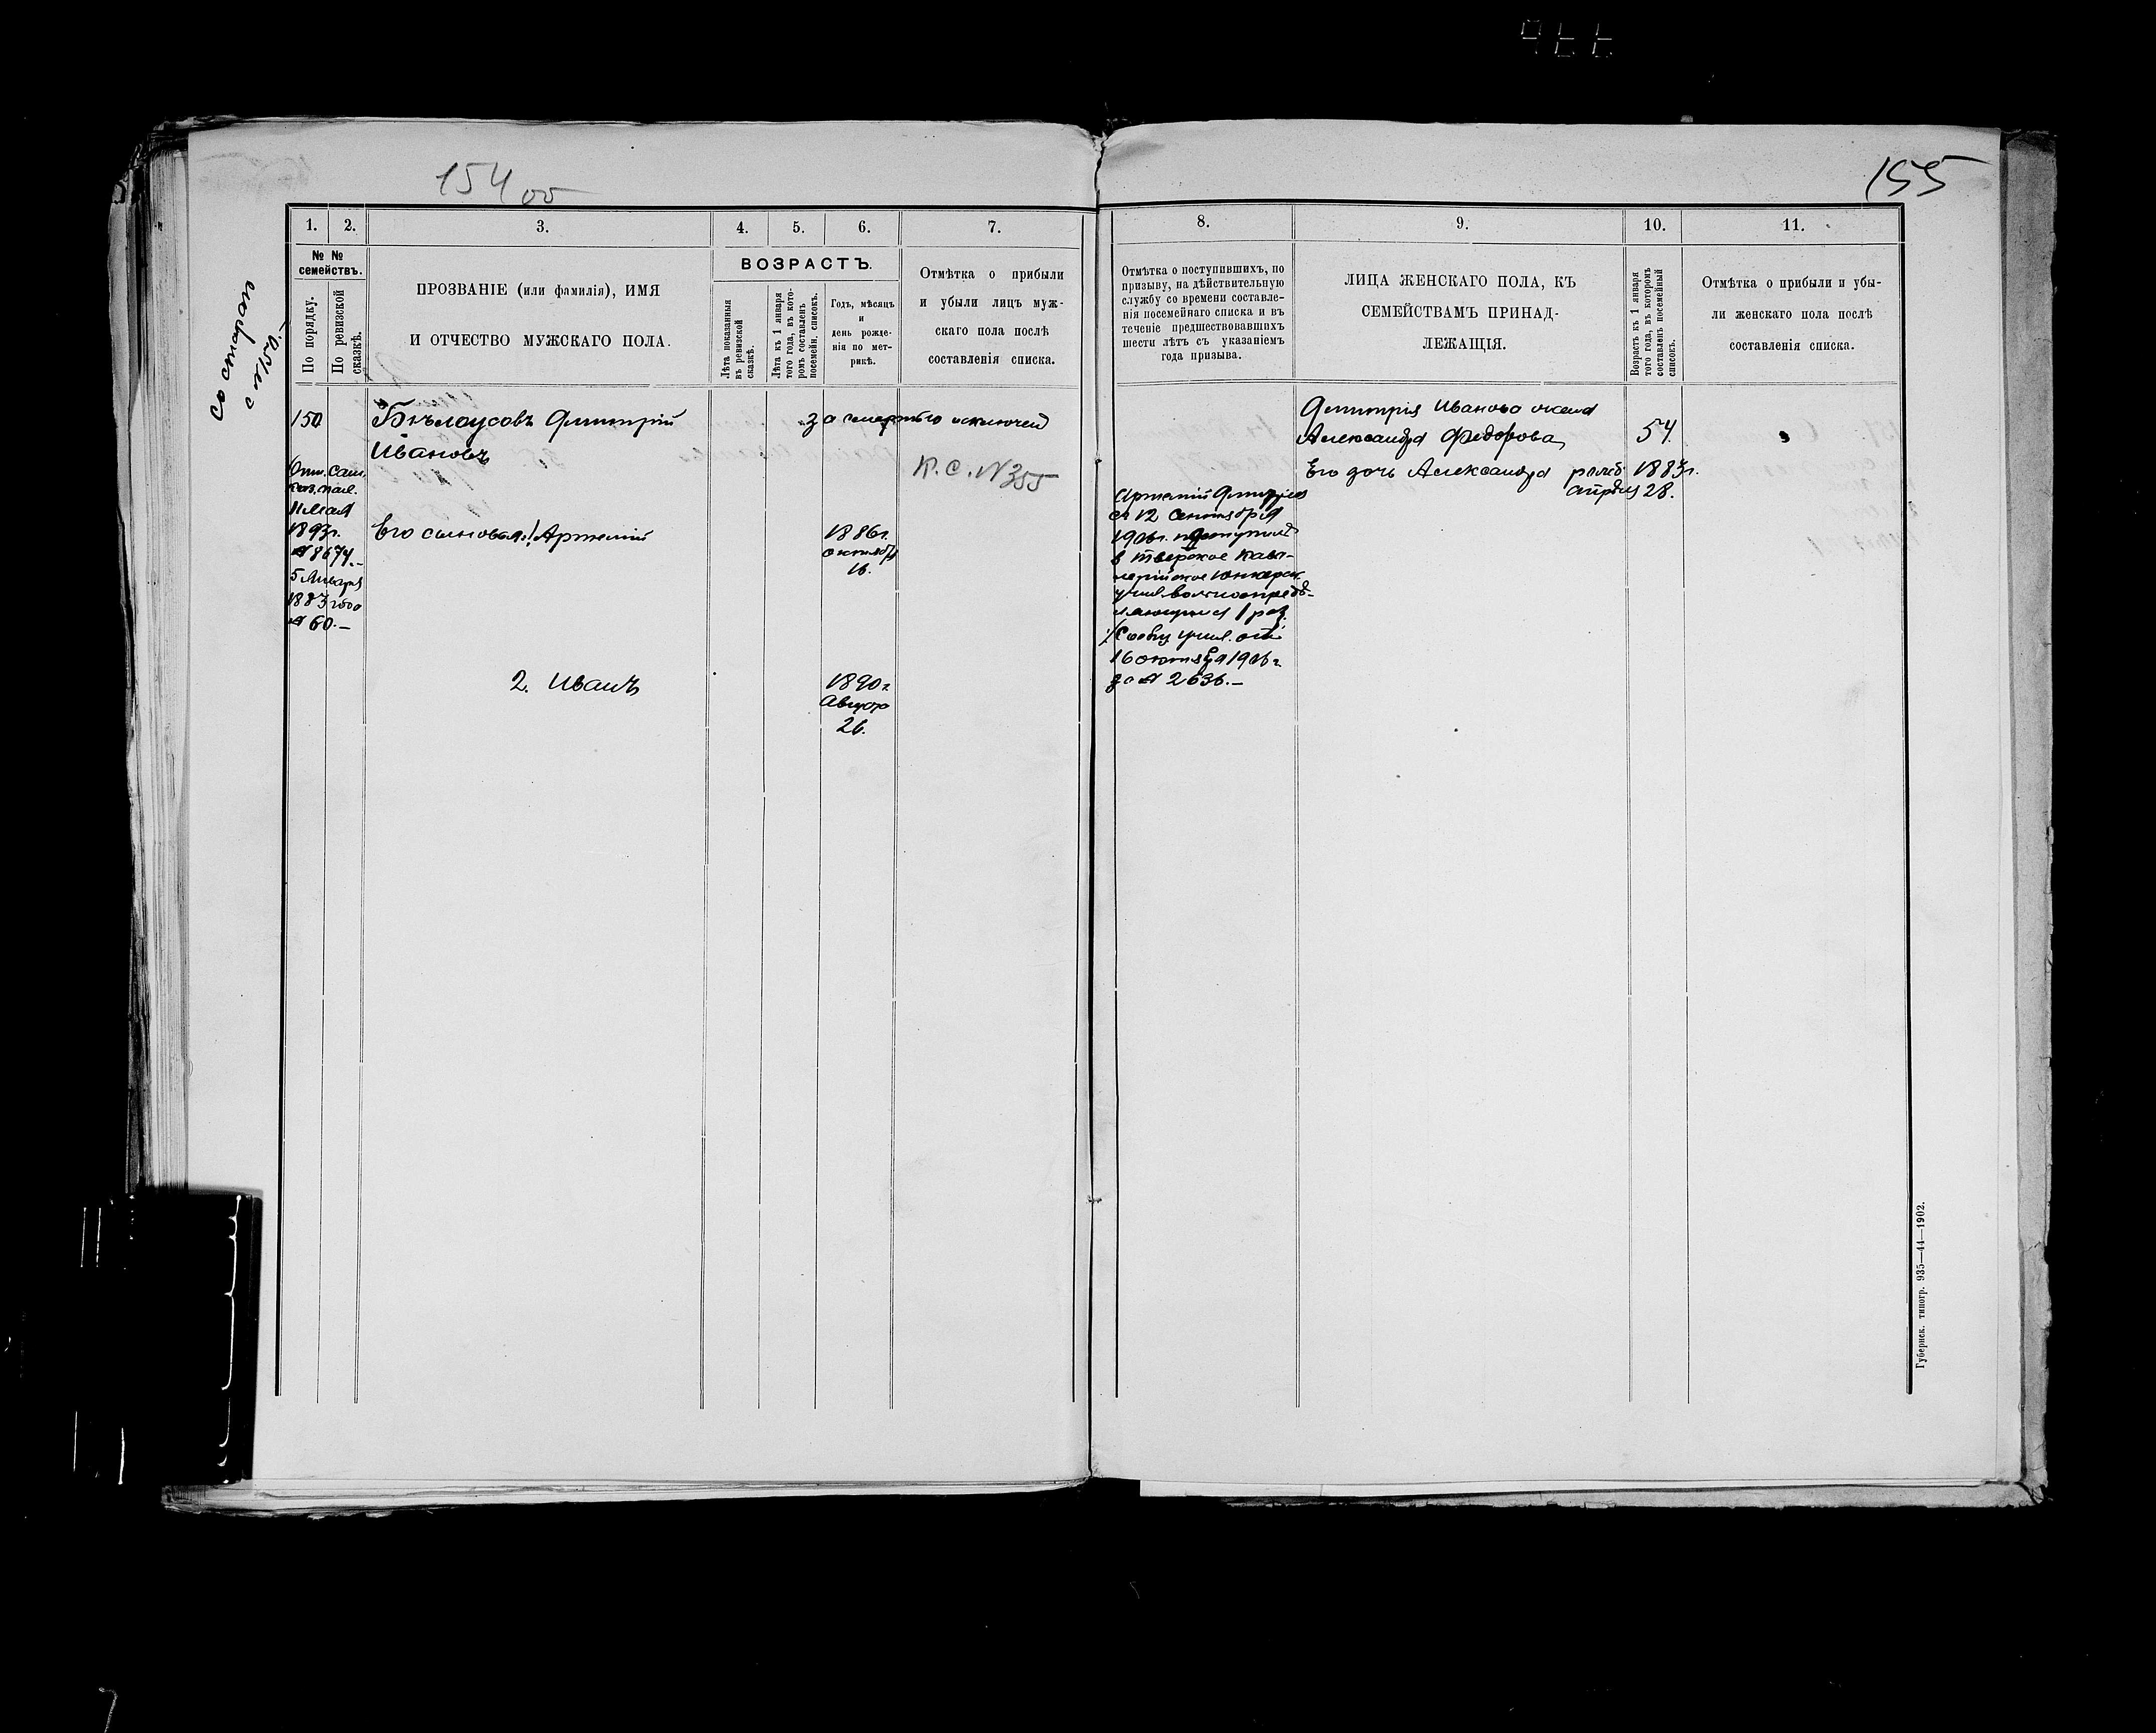 154 об
155
1.
2.
3.
4.
5.
6.
7.
№ №
семействъ.
По порядку.
По ревизской
сказкѣ.
ПРОЗВАНІЕ (или фамилія), ИМЯ
И ОТЧЕСТВО МУЖСКАГО ПОЛА.
ВОЗРАСТЪ.
Лѣта показанныя
въ ревизской
сказкѣ.
Лѣта къ 1 января
того года, въ кото-
ромъ составленъ
посемейн. списокъ.
Годъ, мѣсяцъ
и
день рожде-
нія по мет-
рикѣ.
Отмѣтка о прибыли
и убыли лицъ муж-
скаго пола послѣ
составленія списка.
150
Бѣлоусовъ Дмитрій
Ивановъ
за смертью исключен
К. С. № 355
Отн. Сам.
каз. пал.
11 мая
1893 г.
№ 8674.-
5 Января
1883 года
№ 60.-
Его сыновья: 1 Артемій
1886 г.
октября
16.
2. Иванъ
1890 г.
Август
26.
8.
9.
10.
11.
Отмѣтка о поступившихъ, по
призыву, на дѣйствительную
службу со времени составле-
нія посемейнаго списка и въ
теченіе предшествовавшихъ
шести лѣтъ съ указаніемъ
года призыва.
ЛИЦА ЖЕНСКАГО ПОЛА, КЪ
СЕМЕЙСТВАМЪ ПРИНАД-
ЛЕЖАЩІЯ.
Возрастъ къ 1 января
того года, въ которомъ
составленъ посемейный
списокъ.
Отмѣтка о прибыли и убы-
ли женскаго пола послѣ
составленія списка.
Артемій Дмитріев
с 12 Сентября
1906 г. поступил
в тверское кава-
лерійское юнкерск.
учил. вольноопредѣ-
ляющимся 1 раз.
/Сообщ. учил. от
16 октября 1906 г.
за № 2636.-
Дмитрія Иванова жена
Александра Федорова
54
Его дочь Александра
родив. 1883 г.
апрѣля 28.
Губернск. типогр. 935—44—1902.